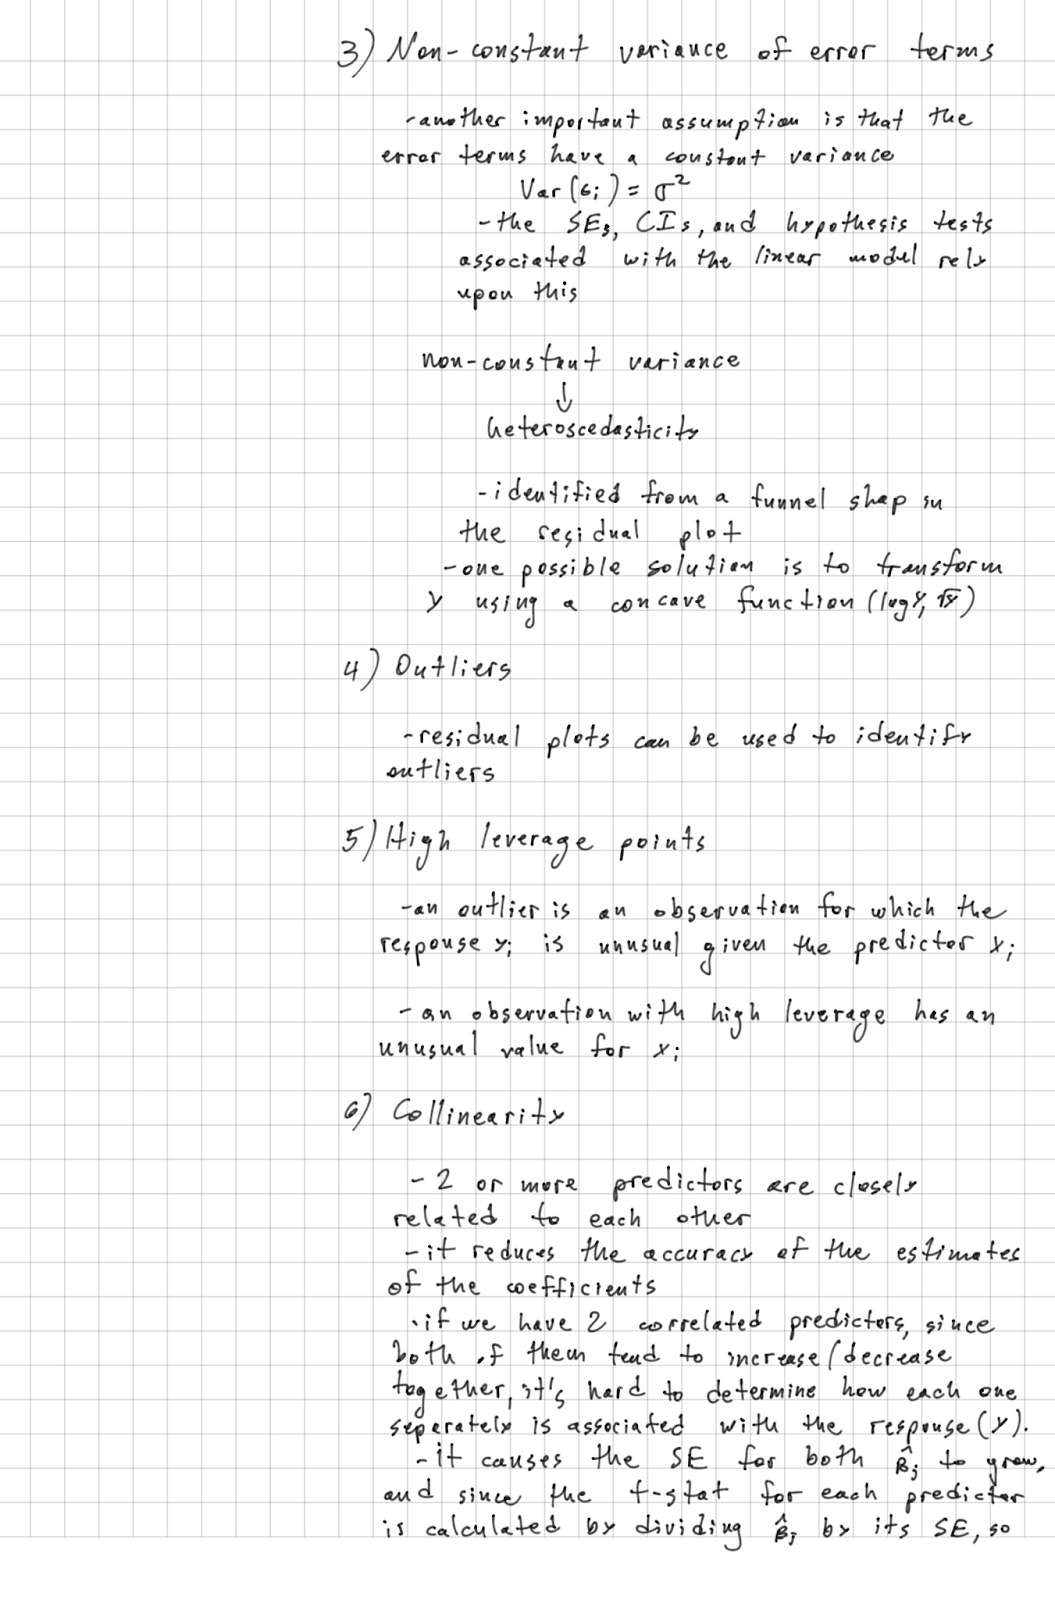 3) Non-constant variance of error terms
-another important assumption is that the
error terms have a constant variance
Var(ϵi) = σ²
-the SEs, CIs, and hypothesis tests
associated with the linear model rely
upon this
non-constant variance
↓
heteroscedasticity
-identified from a funnel shap in
the residual plot
-one possible solution is to transform
y using a concave function (log y, √y)
4) Outliers
-residual plots can be used to identify
outliers
5) High leverage points
-an outlier is an observation for which the
response yi is unusual given the predictor xi
-an observation with high leverage has an
unusual value for xi
6) Collinearity
- 2 or more predictors are closely
related to each other
-it reduces the accuracy of the estimates
of the coefficients
·if we have 2 correlated predictors, since
both of them tend to increase/decrease
together, it's hard to determine how each one
seperately is associated with the response (y).
-it causes the SE for both β̂j to grow,
and since the t-stat for each predictor
is calculated by dividing β̂j by its SE, so